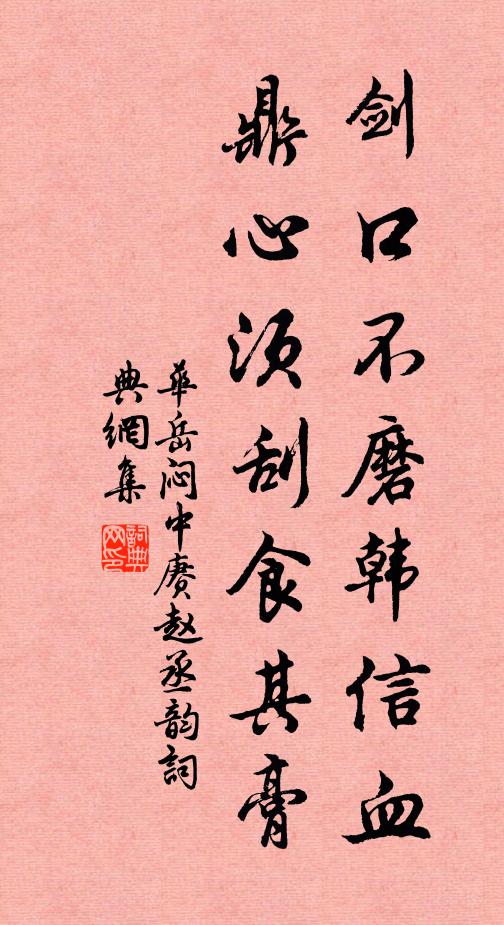 剑口不磨韩信血
鼎心须刮食其膏
华岳闷中赓赵丞韵词
典網集
詞典网印